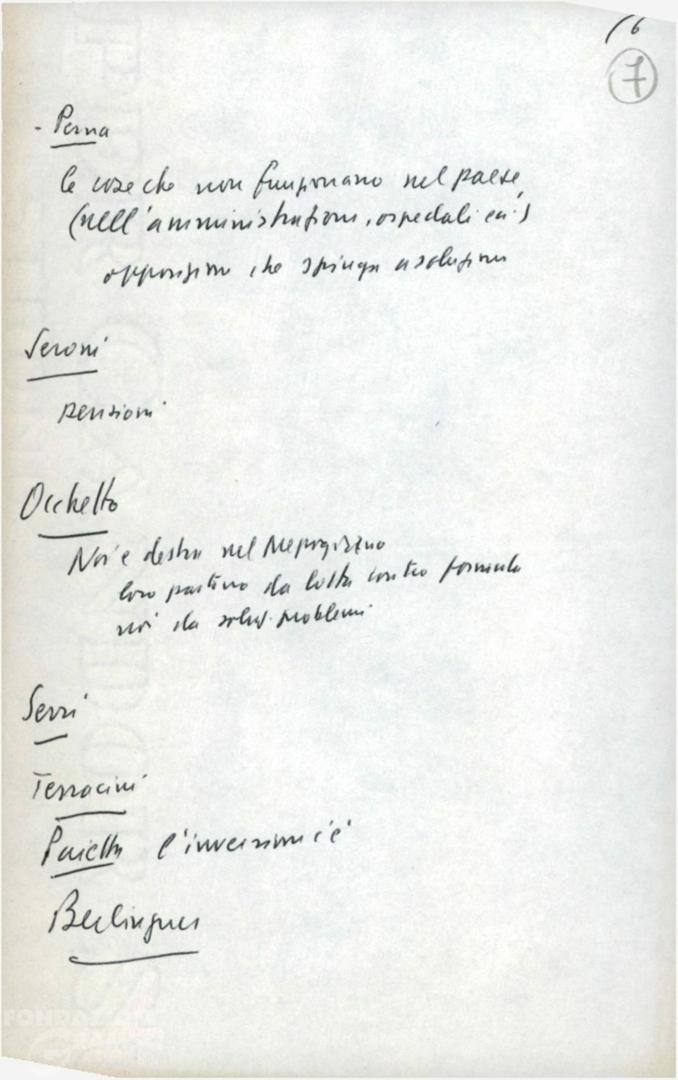 16
7
- Perna
le cose che non funzionano nel paese
(nell'amministrazione, ospedali ecc.)
opposizione che spinga a soluzioni
Seroni
pensioni
Occhetto
Noi e destra nel Mezzogiorno
loro partivano da lotta contro formula
noi da soluz. problemi
Serri
Terracini
Paietta l'inversione c'è
Berlinguer
FONDAZIONE